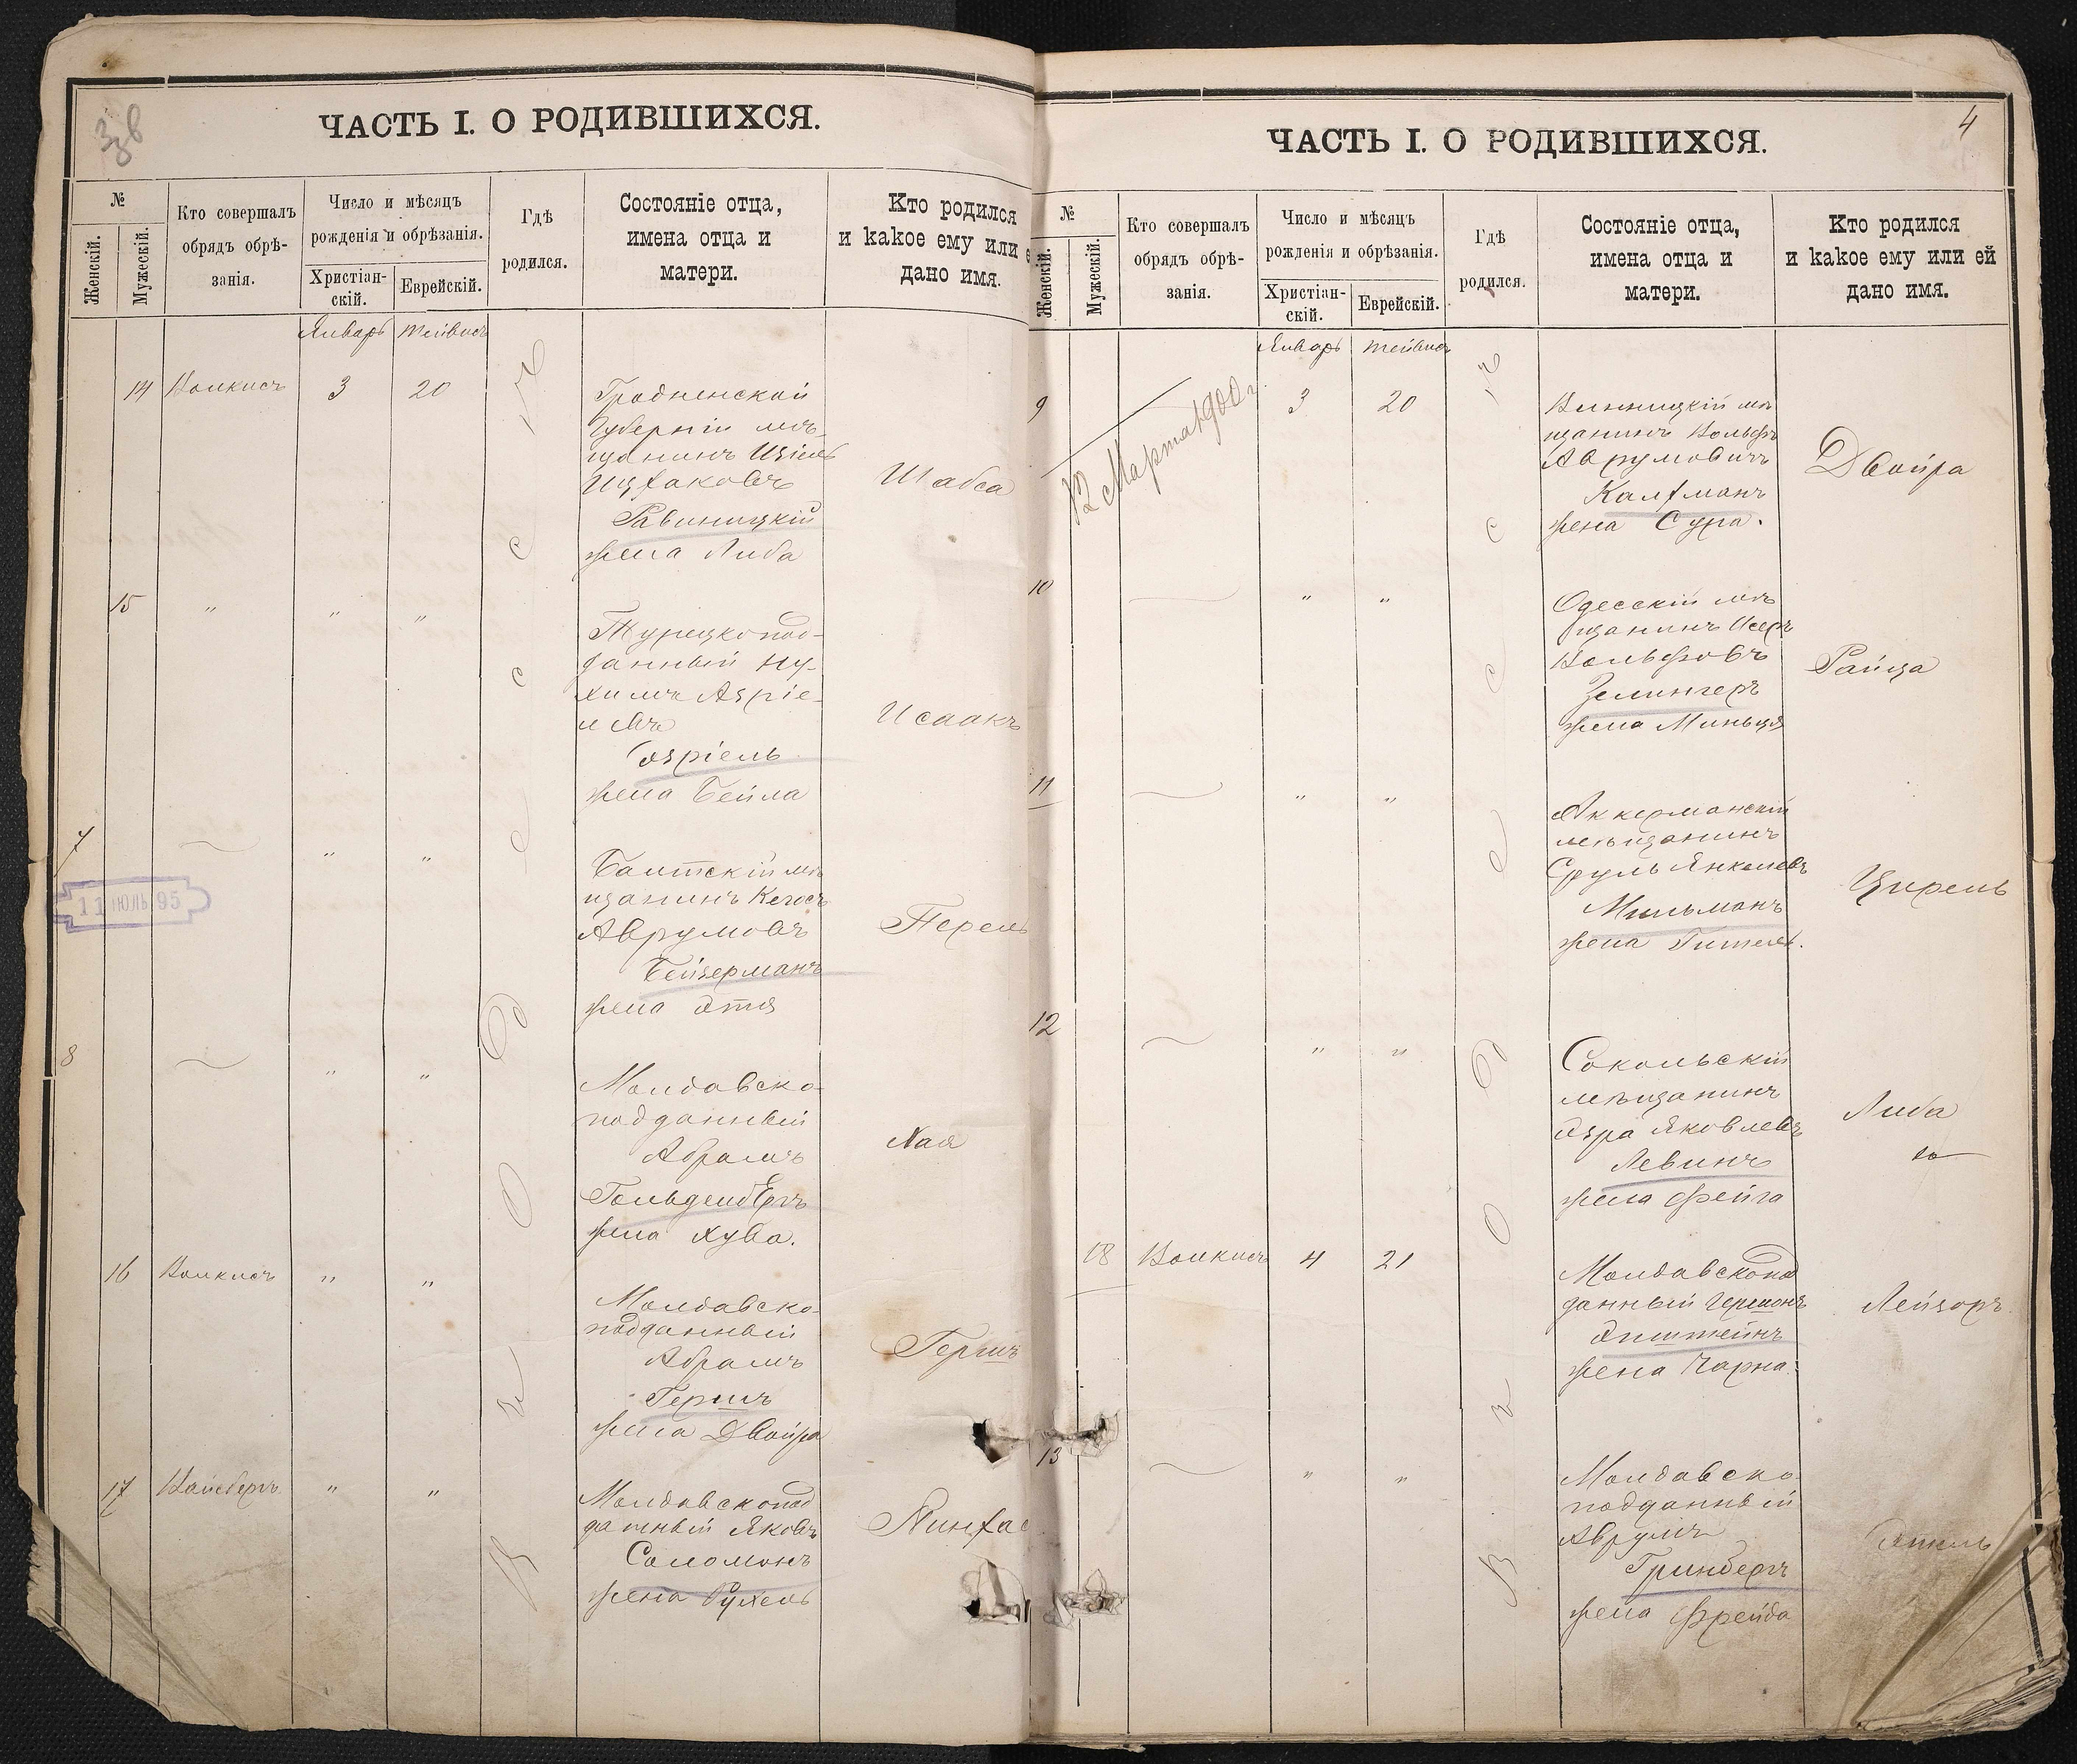 ЧАСТЬ I. О РОДИВШИХСЯ.
№
Женскій.
Мужескій.
Кто совершалъ
обрядъ обрѣ-
занія.
Число и мѣсяцъ
рожденія и обрѣзанія.
Христіан-
скій.
Еврейскій.
Гдѣ
родился.
Состояніе отца,
имена отца и
матери.
Кто родился
и какое ему или е
дано имя.
Январь Тейвисъ
14 Волкисъ 3 20
Гродненской
Губерніи мѣ-
щанинъ
Ицхаковъ
Равиницкій
жена Либа
Шабса
15 " " "
Турецкопод-
данный Ну-
химъ Азріе-
левъ
Озріель
жена Бейла
Исаакъ
7 " "
11 ІЮЛЬ 95
Балтскій мѣ
щанинъ
Аврумовъ
Бейзерманъ
жена Этя
Перель
8 " "
Молдавско-
подданный
Абрамъ
Гольденбергъ
жена Хува.
Хая
16 Волкисъ " "
Молдавско-
подданный
Абрамъ
Гершъ
жена Двойра
Гершъ
17 Вайсбергъ " "
Молдавскопод
данный Яковъ
Соломонъ
жена Рухель
Пинхас
В ъ О д е с с ѣ
ЧАСТЬ I. О РОДИВШИХСЯ.
4
№
Женскій.
Мужескій.
Кто совершалъ
обрядъ обрѣ-
занія.
Число и мѣсяцъ
рожденія и обрѣзанія.
Христіан-
скій.
Еврейскій.
Гдѣ
родился.
Состояніе отца,
имена отца и
матери.
Кто родился
и какое ему или ей
дано имя.
Январь Тейвисъ
9 3 20
12 Марта 1900 г
Винницкій мѣ
щанинъ Вольфъ
Аврумовичъ
Калхманъ
жена Сура.
Двойра
10 " "
Одесскій мѣ
щанинъ Исеръ
Вольфовъ
Зелингеръ
жена Миньця
Райца
11 " "
Аккерманскій
мѣщанинъ
Сруль Янкелевъ
Мильманъ
жена Гитель.
Цирель
12 " "
Сокольскій
мѣщанинъ
Озра Яковлевъ
Левинъ
жена Фейга
Либа
18 Волкисъ 4 21
Молдавскопод
данный Гершонъ
Эпштейнъ
жена Чарна.
Лейзоръ
13 " "
Молдавско-
подданный
Аврумъ
Гринбергъ
жена Фрейда